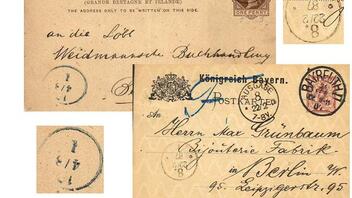 (GRANDE BRETAGNE ET IRLANDE)
THE ADDRESS ONLY TO BE WRITTEN ON THIS SIDE.
ONE PENNY
an die Löbl
Weidmannsche Buchhandlung
Königreich Bayern.
POSTKARTE
AUSGABE
8
22/2
7-8V.
BAYREUTH
An
Herrn Max Grünbaum
Bijouterie Fabrik
in Berlin W.
95. Leipzigerstr. 95
1
4/3
1
1
4/3
1